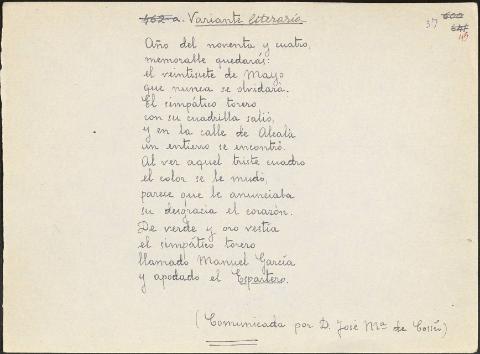 462 a. Variante literaria
37 600
45
Año del noventa y cuatro,
memorable quedarás:
el veintisiete de Mayo
que nunca se olvidará.
El simpático torero
con su cuadrilla salió,
y en la calle de Alcalá
un entierro se encontró.
Al ver aquel triste cuadro
el color se le mudó,
parece que le anunciaba
su desgracia el corazón.
De verde y oro vestía
el simpático torero
llamado Manuel García
y apodado el Espartero.
(Comunicada por D. José Mª de Cossío)